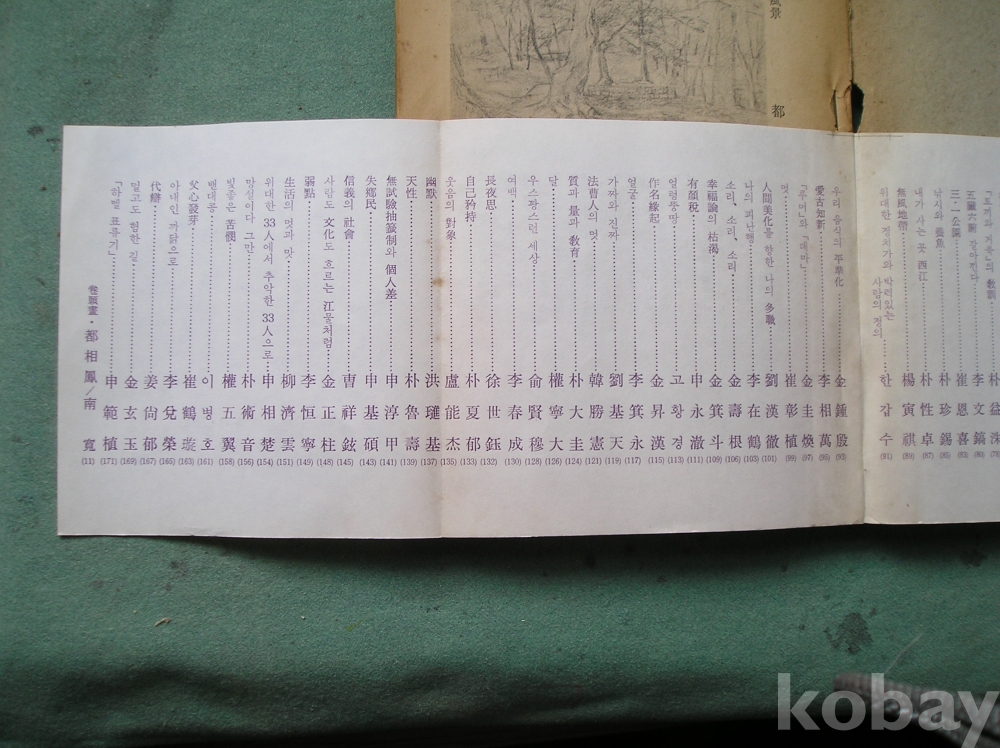 風景
都
「토끼와 거북」의 敎訓
朴
五臟六腑
三·一公園
낚시와 養魚
朴珍錫 (85)
내가 사는 곳 西江
朴性卓 (87)
無風地帶
楊寅祺 (89)
위대한 정치가와 박력있는 사람의 정의
한갑수 (91)
우리 음식의 平準化
金鍾殷 (93)
愛古知新
李相萬 (95)
「유머」와 「데마」
金煥 (97)
멋
崔彰植 (99)
人間美化을 한 나의 多職
劉漢徹 (101)
나의 피난행
李在鶴 (103)
소리, 소리, 소리
金壽根 (106)
幸福論의 枯渴
金箕斗 (109)
有顔稅
申永澈 (111)
얼렁뚱땅
고황경 (113)
作名緣起
金昇漢 (115)
얼굴
李箕永 (117)
가짜와 진짜
劉基天 (119)
法曹人의 멋
韓勝憲 (121)
質과 量과 敎育
朴大善 (124)
달
權大寧 (126)
우스꽝스런 세상
俞賢穆 (128)
여백
李春成 (130)
長夜思
徐世鈺 (132)
自己矜持
朴夏郁 (133)
웃음의 對象
盧能杰 (135)
幽默
洪璡基 (137)
天性
朴魯壽 (139)
無試驗抽籤制와 個人差
申淳甲 (141)
失鄕民
申基碩 (143)
信義의 社會
曺祥鉉 (145)
사람도 文化도 흐르는 江물처럼
金正柱 (148)
弱點
李恒寧 (149)
生活의 멋과 맛
柳濟雲 (151)
위대한 33人에서 추악한 33人으로
申相楚 (154)
망설이다 그만
朴術音 (156)
빛좋은 苦憫
權五翼 (158)
밴대콩
이병호 (161)
父心發芽
崔鶴璇 (163)
아내인 까닭으로
李兌榮 (165)
代辯
姜尙郁 (167)
멀고도 험한 길
金玄玉 (169)
「하멜 표류기」
申範植 (171)
卷頭畫·都相鳳/南寬 (11)
kobay